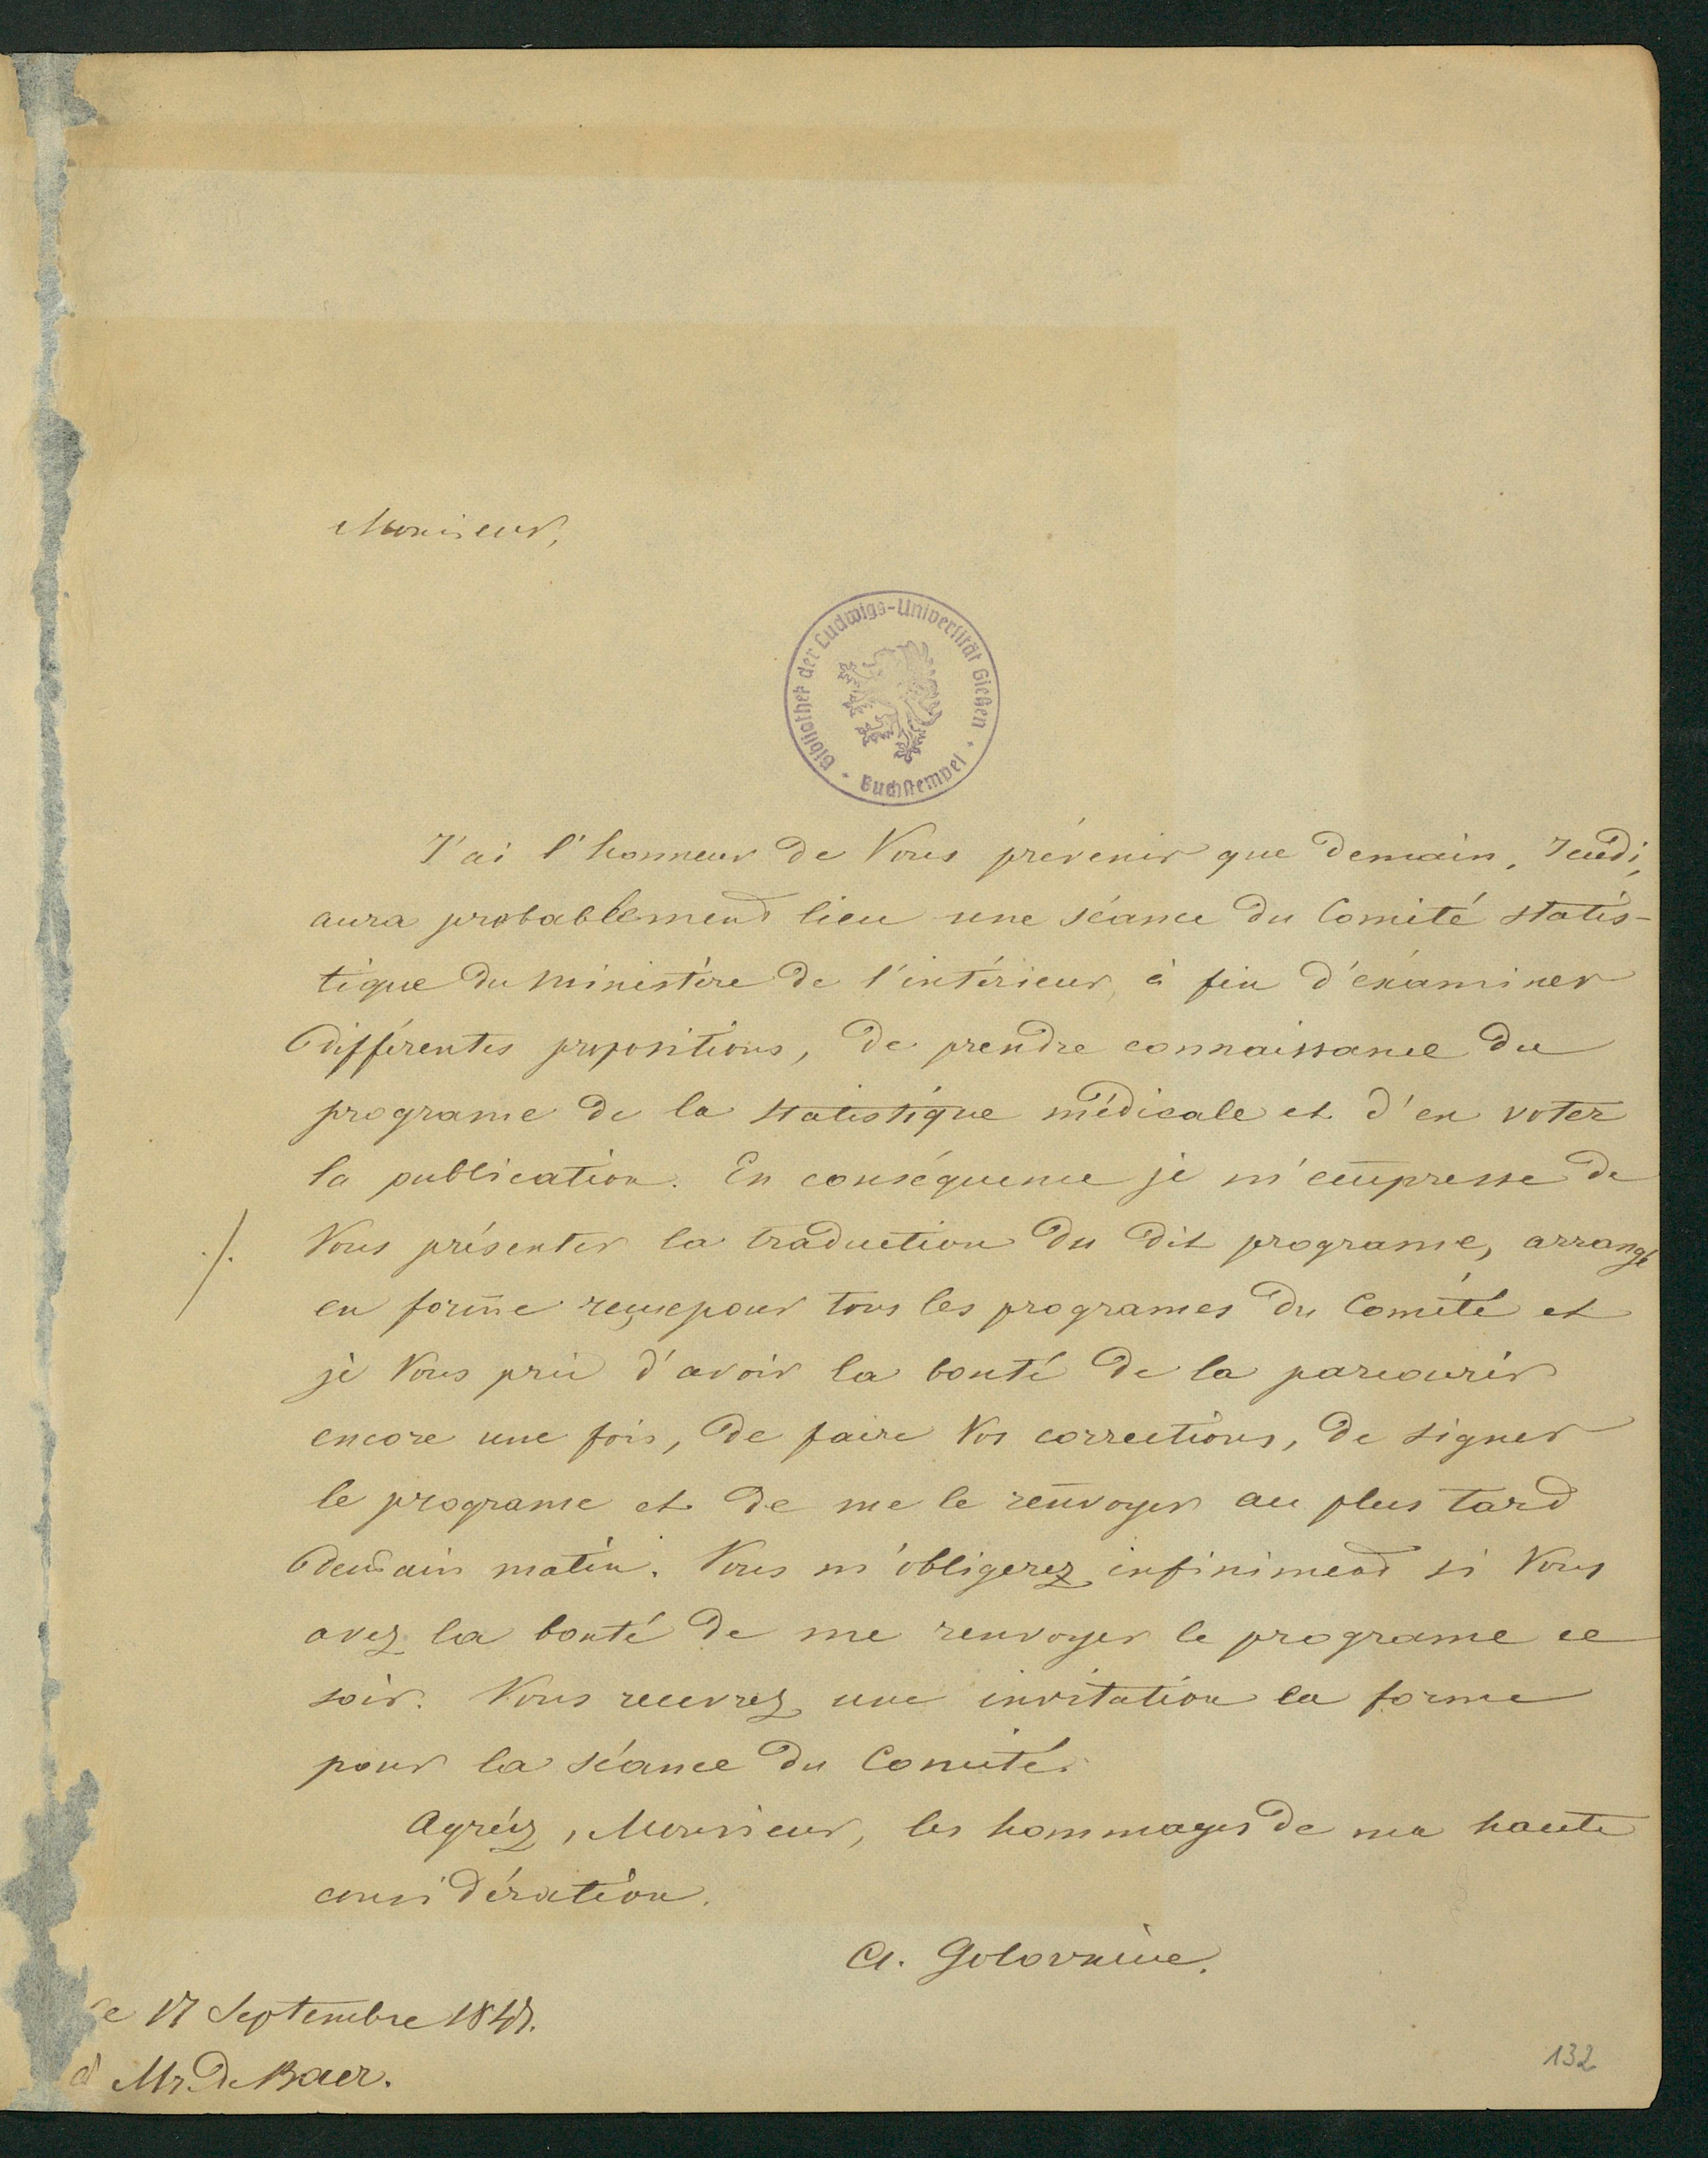 Monsieur,
Bibliothek der Ludwigs-Universität Gießen
Buchstempel
J'ai l'honneur de Vous prévenir que demain, Jeudi,
aura probablement lieu une séance du Comité statis-
tique du ministère de l'intérieur, à fin d'éxaminer
différentes propositions, de prendre connaissance du
programe de la statistique médicale et d'en voter
la publication. En conséquence je m'empresse de
./. Vous présenter la traduction du dit programe, arrangé
en forme reçue pour tous les programes du Comité et
je Vous prie d'avoir la bonté de la parcourir
encore une fois, de faire Vos corrections, de signer
le programe et de me le renvoyer au plus tard
demain matin. Vous m'obligerez infiniment si Vous
avez la bonté de me renvoyer le programe ce
soir. Vous recevrez une invitation en forme
pour la séance du Comité.
Agréez, Monsieur, les hommages de ma haute
considération.
A. Golovnine.
le 17 Septembre
à Mr. de Baer.
132